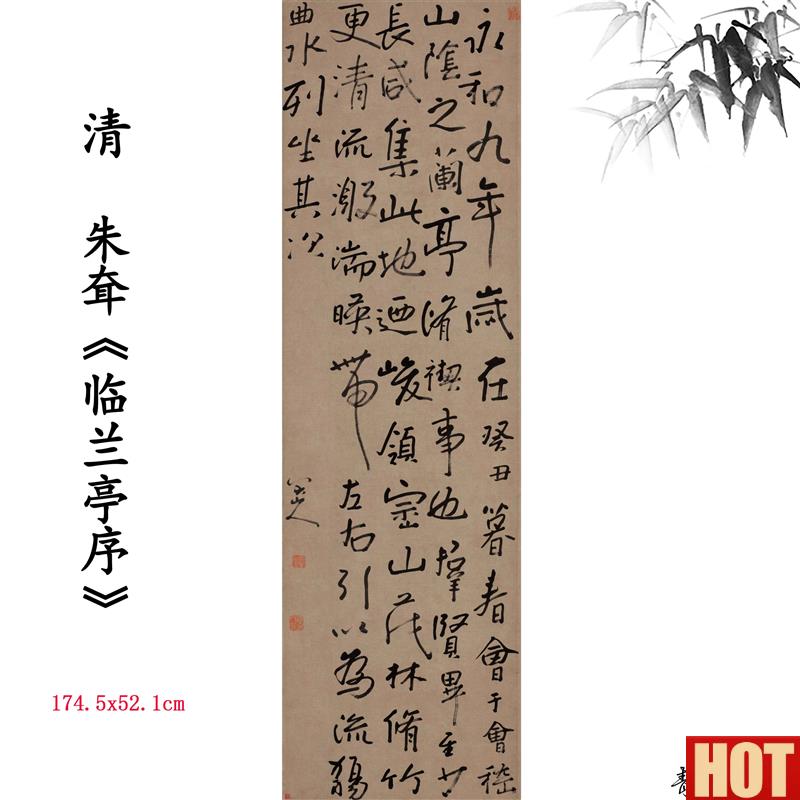 清 朱耷《临兰亭序》
174.5x52.1cm
永和九年歲在癸丑暮春會于會稽
山陰之蘭亭脩禊事也羣賢畢至少
長咸集此地迺峻領崇山茂林脩竹
更清流激湍暎帶左右引以為流觴
曲水列坐其次
八大山人
HOT